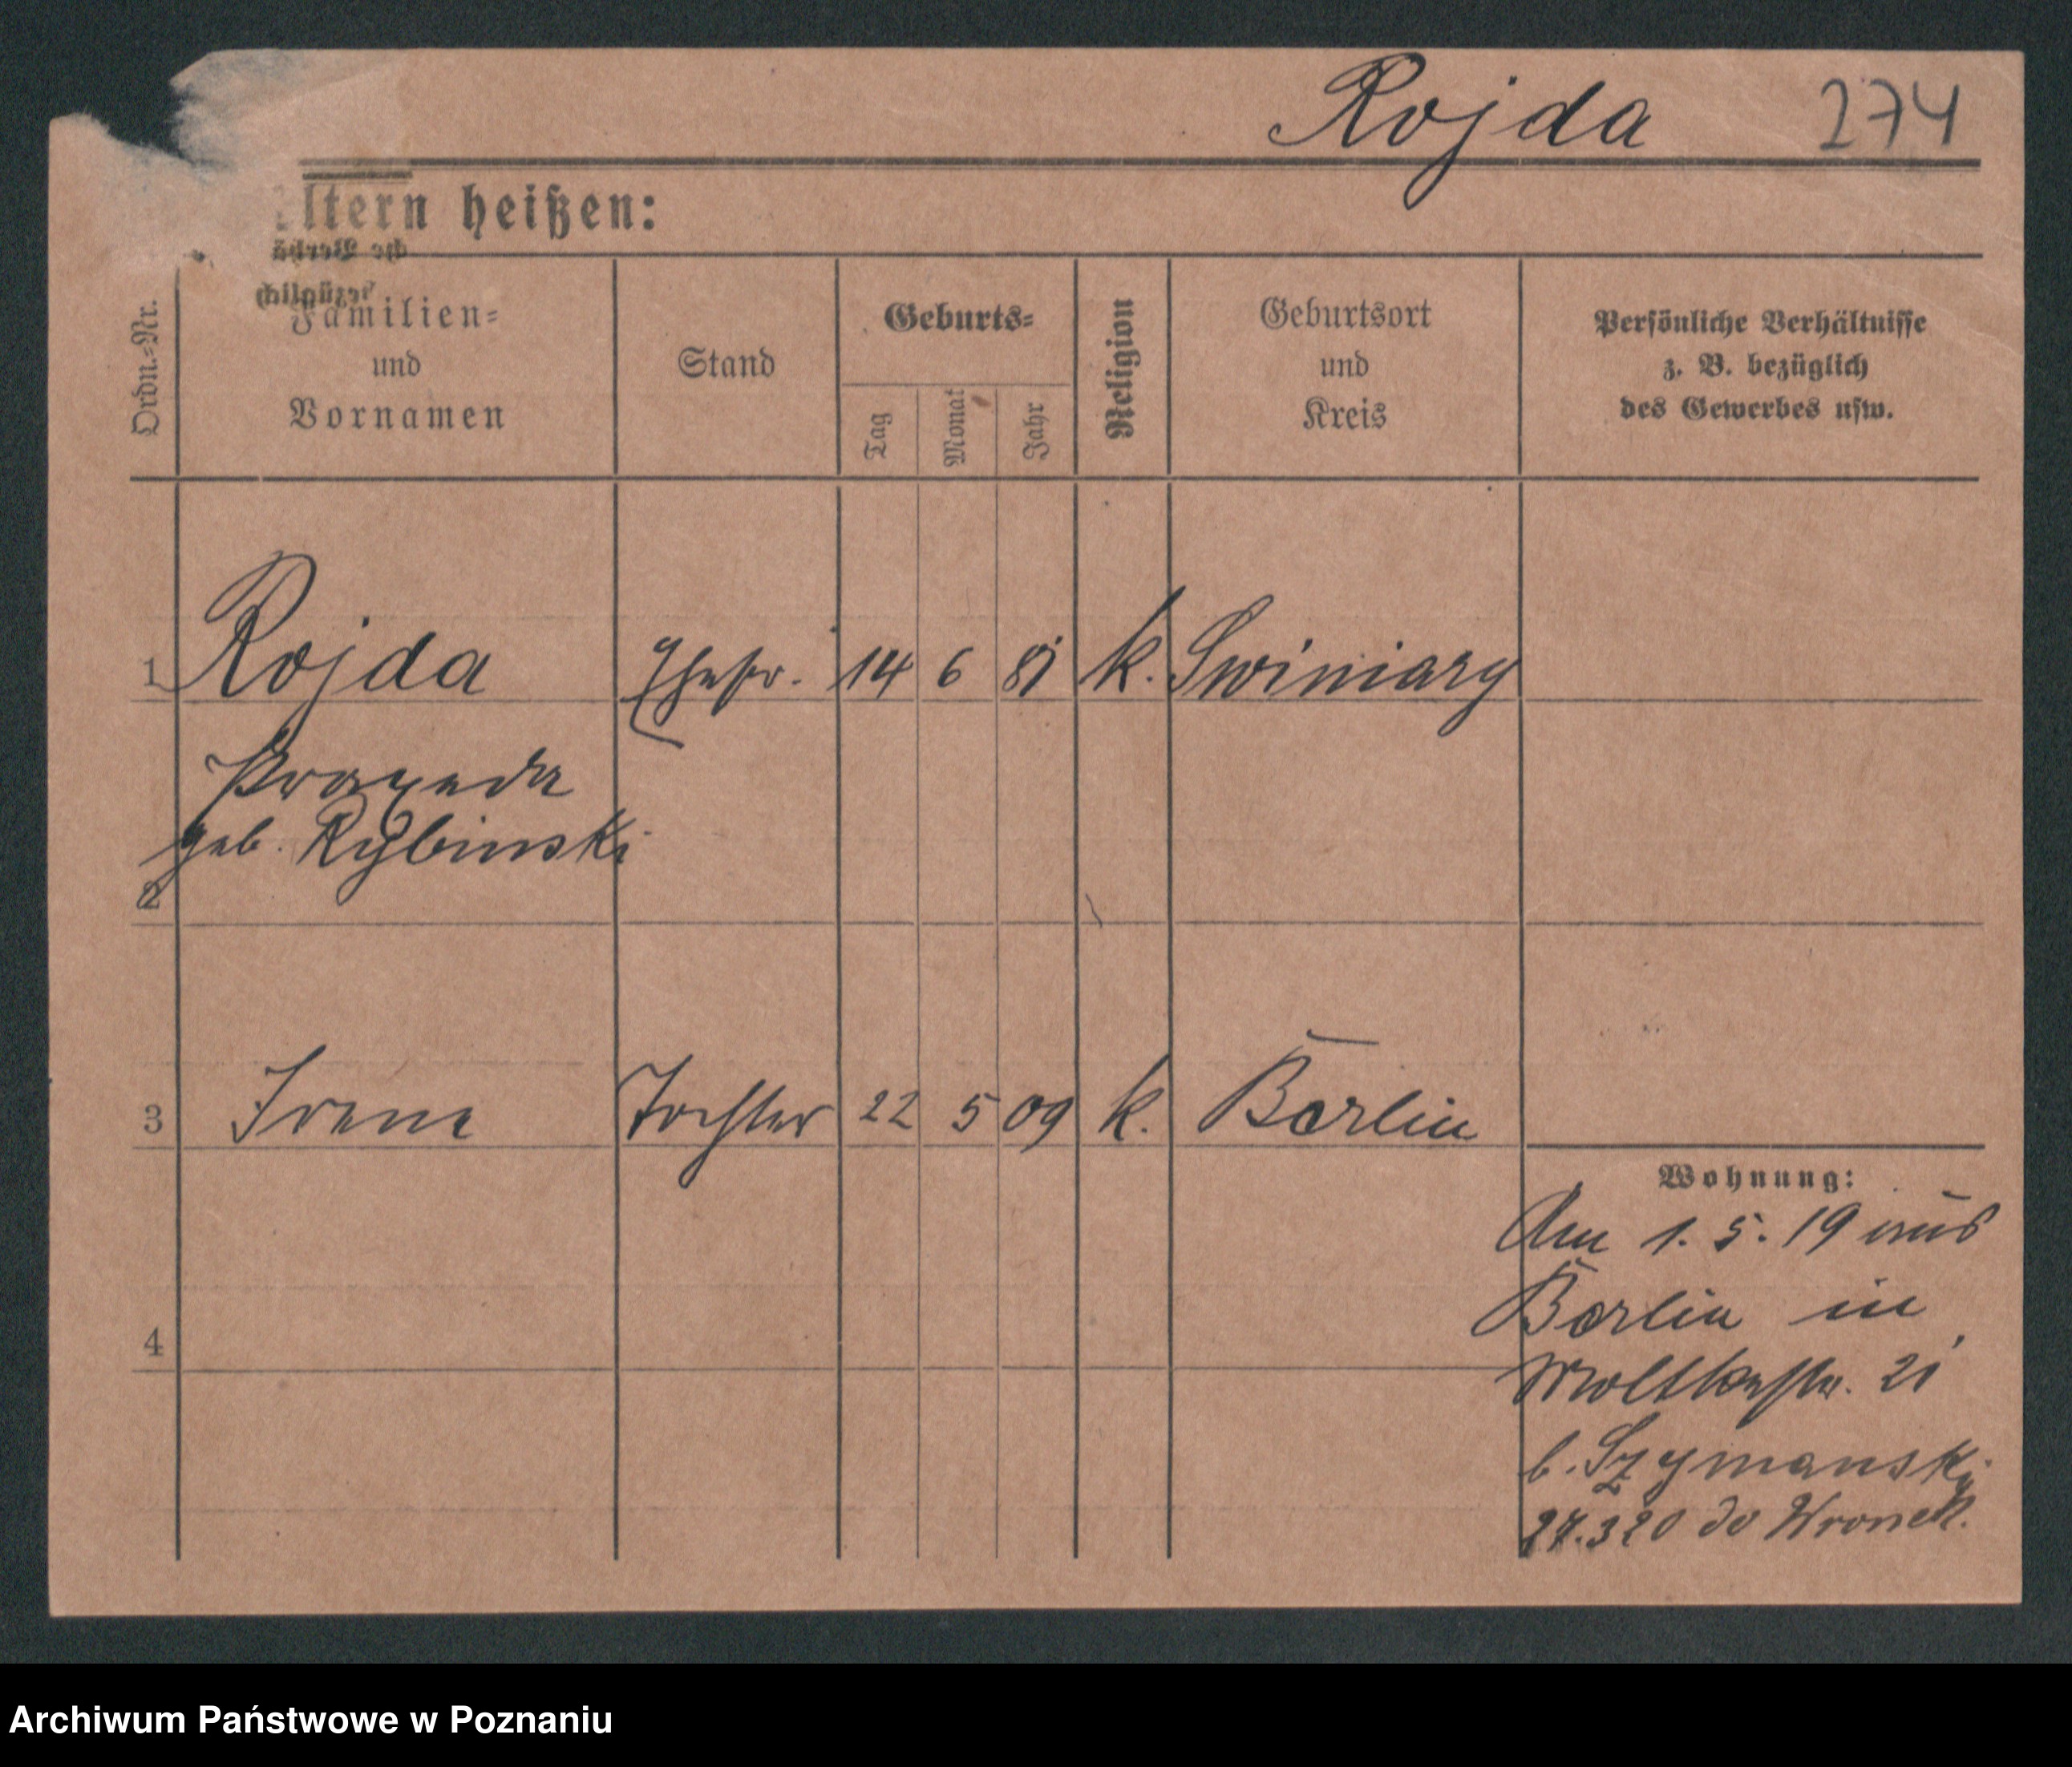 Rojda 274
Eltern heißen:
Ordn.-Nr.
Familien-
und
Vornamen
Stand
Geburts-
Tag
Monat
Jahr
Religion
Geburtsort
und
Kreis
Persönliche Verhältnisse
z. B. bezüglich
des Gewerbes usw.
1 Rojda Ehefr. 14 6 81 k. Swiniary
Praxeda
geb. Rybinski
2
3 Irene Tochter 22 5 09 k. Berlin
Wohnung:
Am 1. 5. 19 aus
Berlin in
4
Moltkestr. 21
b. Szymanski
27.3 20 do Wronek.
Archiwum Państwowe w Poznaniu